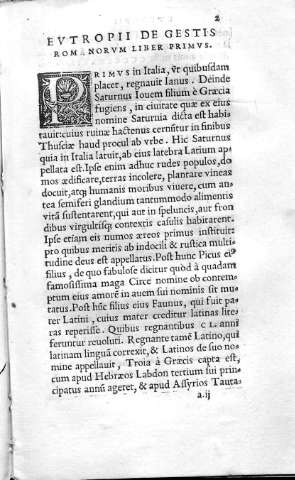 2
EVTROPII DE GESTIS
ROMANORVM LIBER PRIMVS.
PRIMVS in Italia, vt quibusdam
placet, regnauit Ianus. Deinde
Saturnus Iouem filium è Græcia
fugiens, in ciuitate quæ ex eius
nomine Saturnia dicta est habi
tauit: cuius ruinæ hactenus cernũtur in finibus
Thusciæ haud procul ab vrbe. Hic Saturnus
quia in Italia latuit, ab eius latebra Latium ap-
pellata est. Ipse enim adhuc rudes populos, do
mos ædificare, terras incolere, plantare vineas
docuit, atq; humanis moribus viuere, cum an-
tea semiferi glandium tantummodo alimentis
vitã sustentarent, qui aut in speluncis, aut fron
dibus virgultisq; contextis casulis habitarent.
Ipse etiam eis numos æreos primus instituit:
pro quibus meritis ab indocili & rustica multi
tudine deus est appellatus. Post hunc Picus eiº
filius, de quo fabulose dicitur quòd à quadam
famosissima maga Circe nomine ob contem-
ptum eius amorẽ in auem sui nominis sit mu-
tatus. Post hũc filius eius Faunus, qui fuit pa-
ter Latini, cuius mater creditur latinas lite-
ras reperisse. Quibus regnantibus CL anni
feruntur reuoluti. Regnante tamẽ Latino, qui
latinam linguã correxit, & Latinos de suo no-
mine appellauit, Troia à Græcis capta est,
cum apud Hebræos Labdon tertium sui prin-
cipatus annũ ageret, & apud Assyrios Tauta-
a.ij